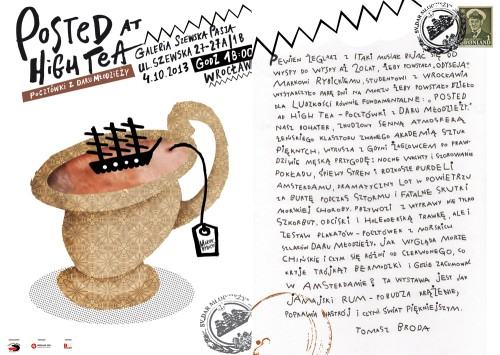 POSTED AT
HIGH TEA
POCZTÓWKI Z DARU MŁODZIEŻY
GALERIA SZEWSKA PASJA
UL. SZEWSKA 27-27A/1B
4.10.2013 GODZ 18:00
WROCŁAW
PEWIEN ŻEGLARZ Z ITAKI MUSIAŁ BUJAĆ SIĘ OD
WYSPY DO WYSPY AŻ 20 LAT, ŻEBY POWSTAŁA „ODYSEJA”.
MARKOWI RYBICKIEMU, STUDENTOWI Z WROCŁAWIA
WYSTARCZYŁO PARĘ DNI NA MORZU ŻEBY POWSTAŁO DZIEŁO
DLA LUDZKOŚCI RÓWNIE FUNDAMENTALNE: „POSTED
AT HIGH TEA - POCZTÓWKI Z DARU MŁODZIEŻY”.
NASZ BOHATER, ZNUDZONY SENNĄ ATMOSFERĄ
ŻEŃSKIEGO KLASZTORU ZWANEGO AKADEMIĄ SZTUK
PIĘKNYCH, WYRUSZA Z GDYNI ŻAGLOWCEM PO PRAW-
DZIWIE MĘSKĄ PRZYGODĘ: NOCNE WACHTY I SZOROWANIE
POKŁADU, ŚPIEWY SYREN I ROZKOSZE BURDELI
AMSTERDAMU, DRAMATYCZNY LOT W POWIETRZU
ZA BURTĘ PODCZAS SZTORMU I FATALNE SKUTKI
MORSKIEJ CHOROBY. PRZYWOZI Z WYPRAWY NIE TYLKO
SZKORBUT, ODCISKI I HOLENDERSKĄ TRAWKĘ, ALE I
ZESTAW PLAKATÓW - POCZTÓWEK Z MORSKICH
SZLAKÓW DARU MŁODZIEŻY. JAK WYGLĄDA MORZE
CHIŃSKIE I CZYM SIĘ RÓŻNI OD CZERWONEGO, CO
KRYJE TRÓJKĄT BERMUDZKI I GDZIE ZACUMOWAĆ
W AMSTERDAMIE? TA WYSTAWA JEST JAK
JAMAJSKI RUM - POBUDZA KRĄŻENIE,
POPRAWIA NASTRÓJ I CZYNI ŚWIAT PIĘKNIEJSZYM.
TOMASZ BRODA